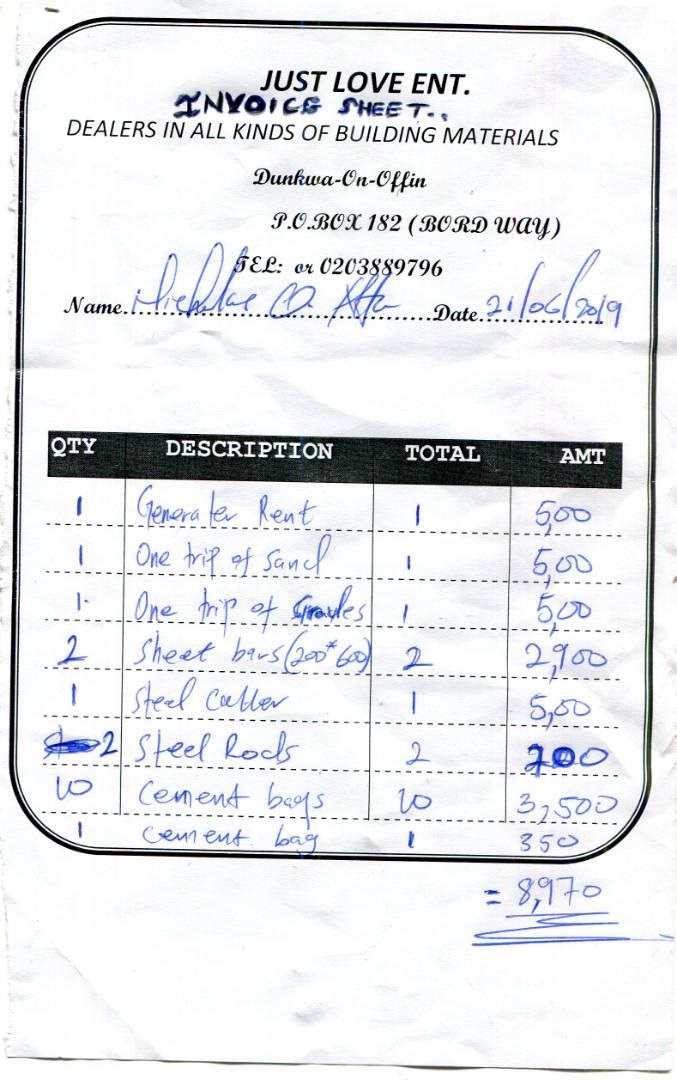 JUST LOVE ENT.
INVOICE SHEET..
DEALERS IN ALL KINDS OF BUILDING MATERIALS
Dunkwa-On-Offin
P.O.BOX 182 (BORD WAY)
TEL: or 0203889796
Name. Date 21/06/2019
QTY DESCRIPTION TOTAL AMT
1 Generater Rent 1 5,00
1 One trip of Sand 1 5,00
1. One trip of 1 5,00
2 Sheet bars (200*600) 2 2,900
1 Steel Cutter 1 5,00
2 Steel Rods 2
10 Cement bags 10 3,500
1 Cement bag 1 350
= 8,970